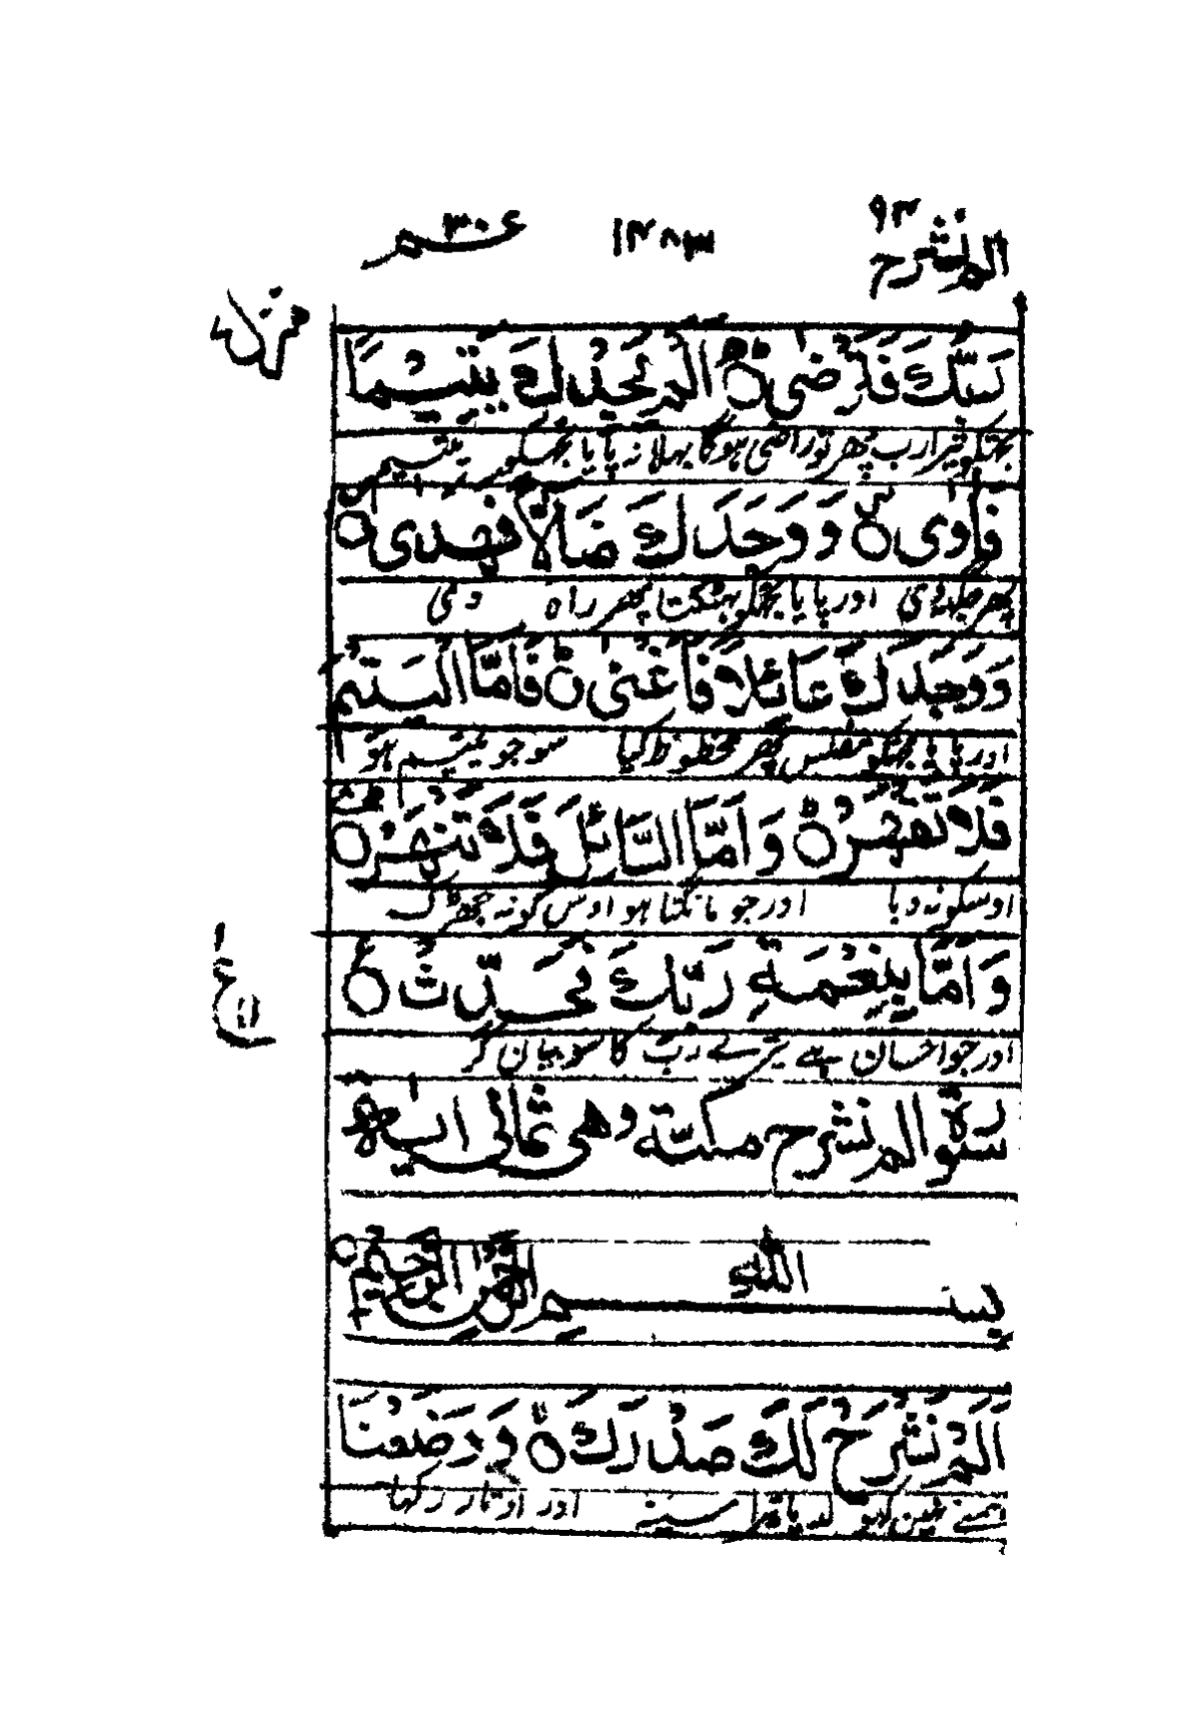 ٩٣ ١٣٨٣ عم ٣٠
الم نشرح
منزل
رَبُّكَ فَتَرْضٰى ۝ اَلَمْ يَجِدْكَ يَتِيْمًا
تجھکو تیرا رب پھر تو راضی ہوگا بہلا نہ پایا تجھکو یتیم
فَاٰوٰى ۝ وَوَجَدَكَ ضَآلًّا فَهَدٰى ۝
پھر جگہ دی اور پایا تجھکو بھٹکتا پھر راہ دی
وَوَجَدَكَ عَآئِلًا فَاَغْنٰى ۝ فَاَمَّا الْيَتِيْمَ
اور پایا تجھکو مفلس پھر محظوظ کیا سو جو یتیم ہو
فَلَا تَقْهَرْ ۝ وَاَمَّا السَّآئِلَ فَلَا تَنْهَرْ ۝
اوسکو نہ دبا اور جو مانگتا ہو اوس کو نہ جھڑک
وَاَمَّا بِنِعْمَةِ رَبِّكَ فَحَدِّثْ ۝
ع ١١
اور جو احسان ہے تیرے رب کا سو بیان کر
سورة الم نشرح مكية وهي ثماني اٰية
بسم الله الرحمن الرحيم ۝
اَلَمْ نَشْرَحْ لَكَ صَدْرَكَ ۝ وَوَضَعْنَا
ہمنے نہیں کھول دیا تیرا سینہ اور اوتار رکھا